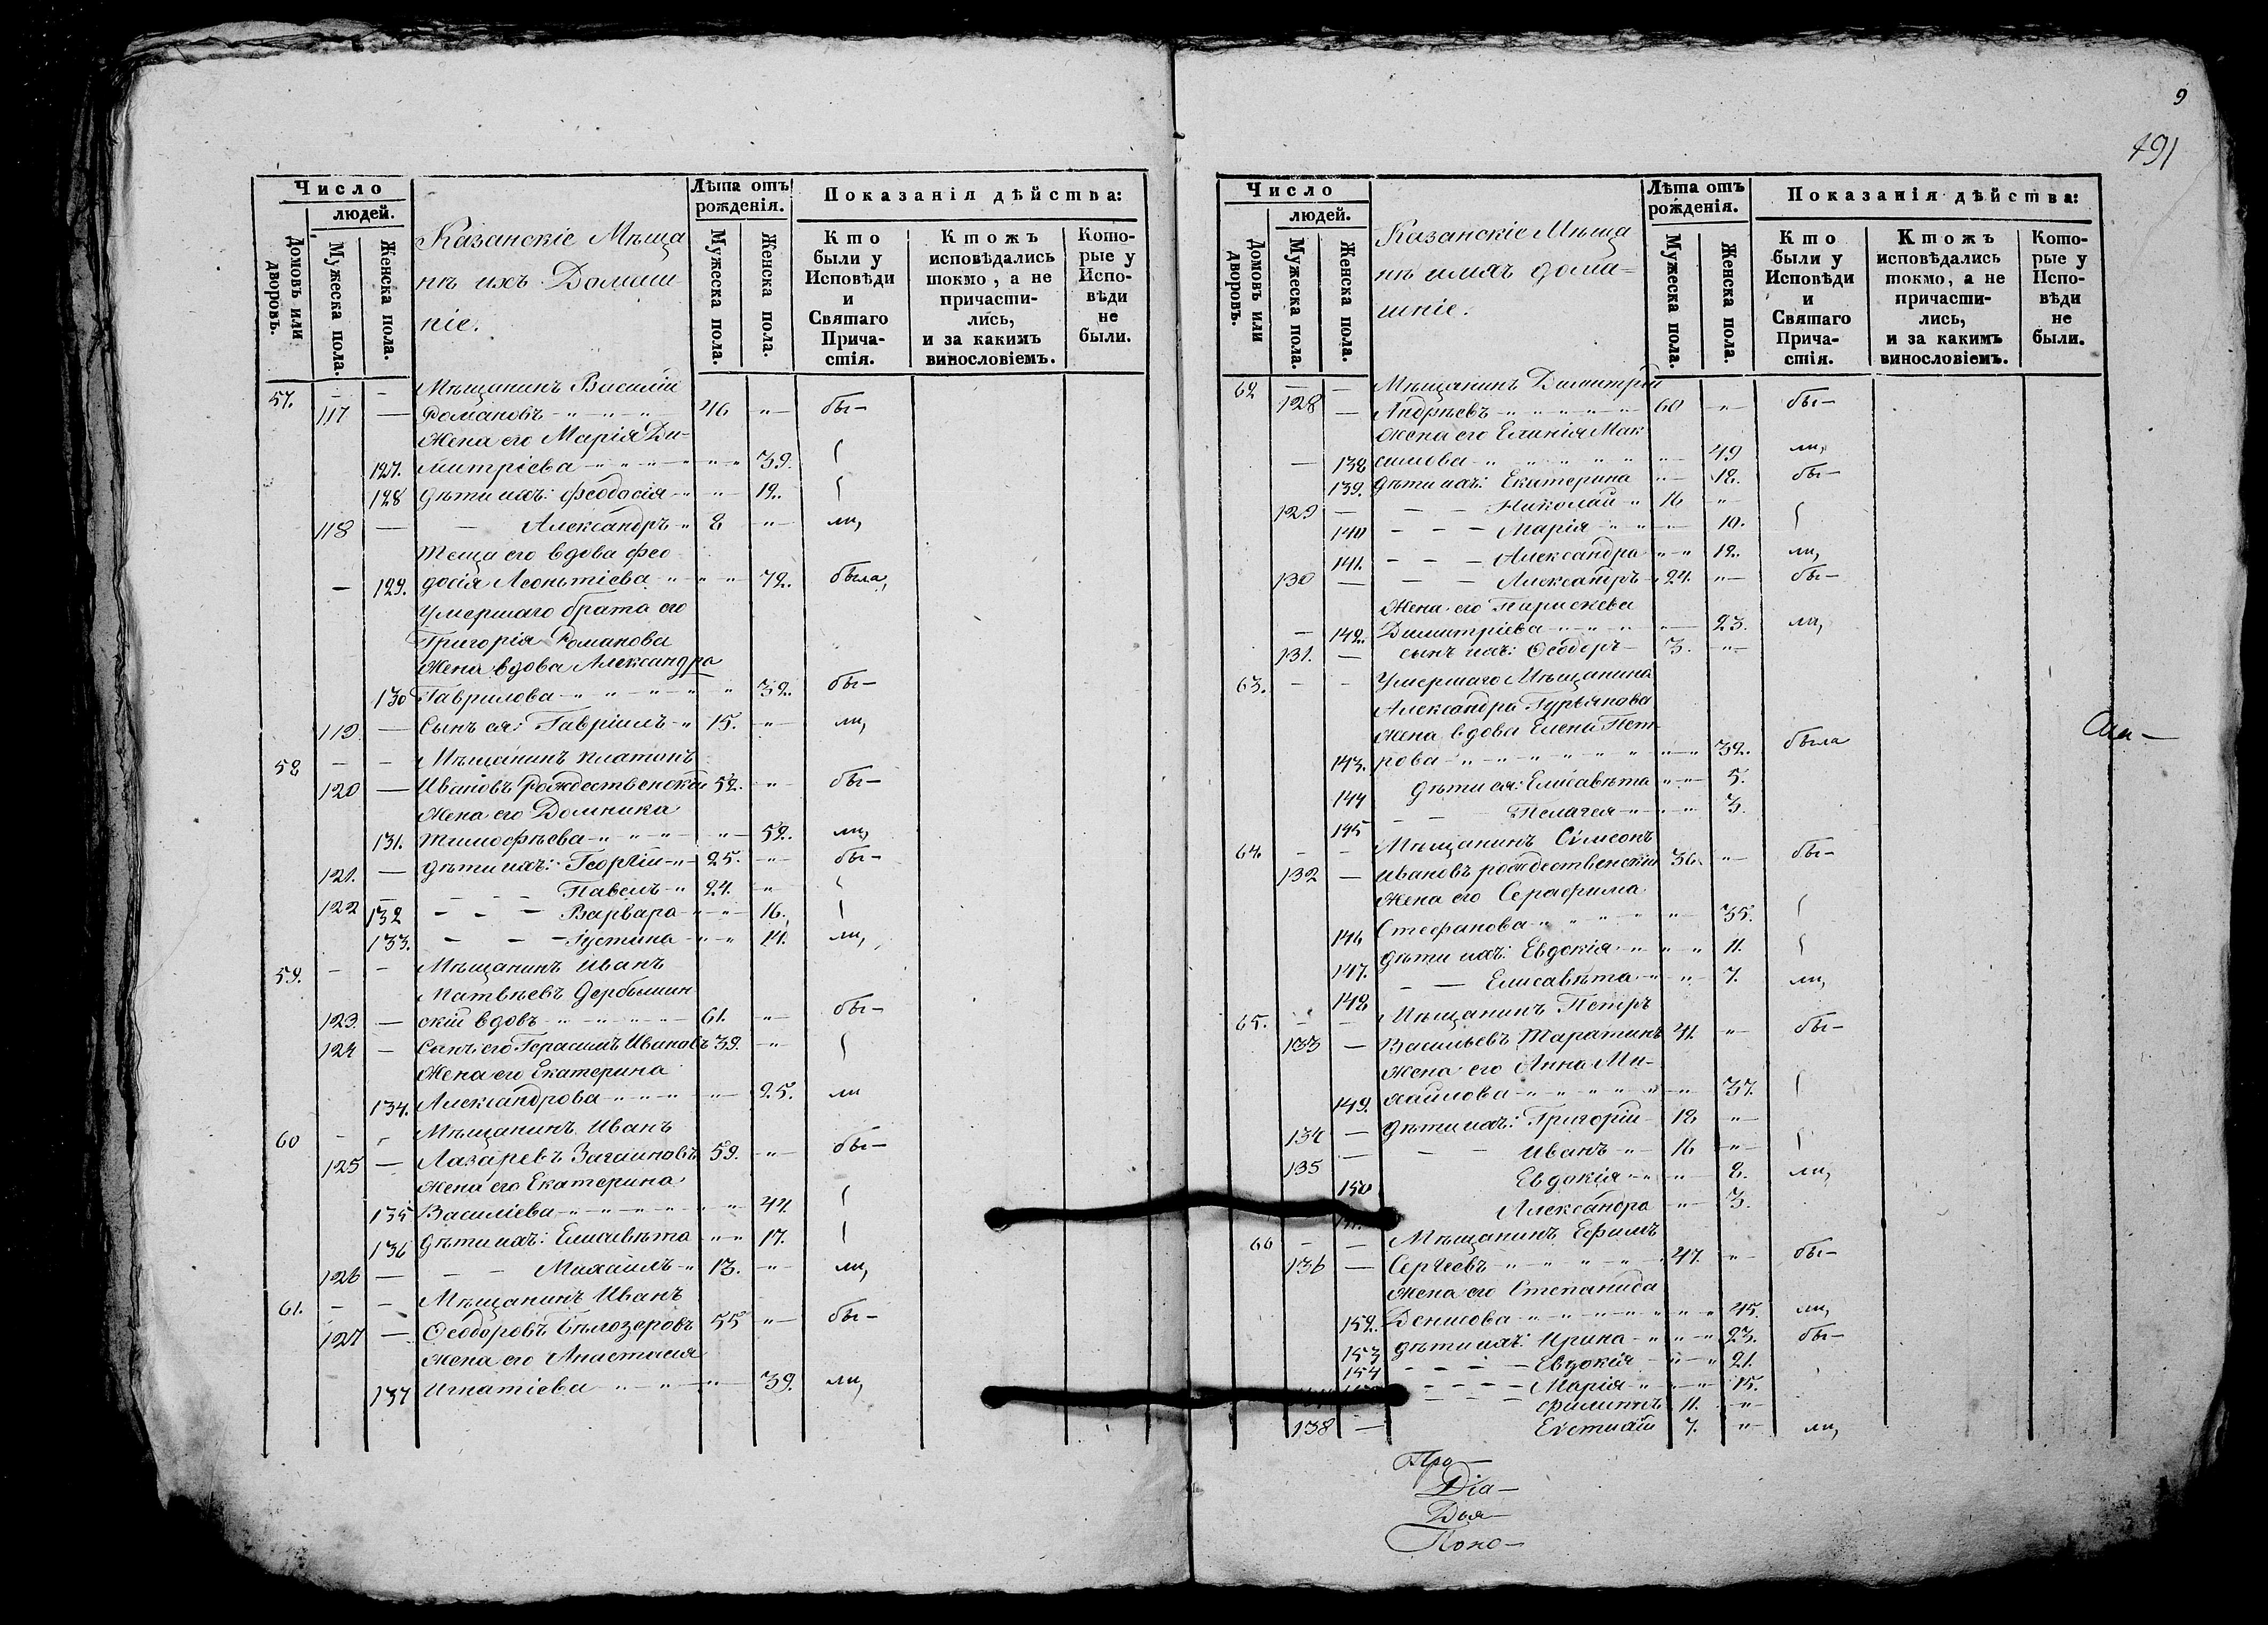 Число
людей.
Домовъ или дворовъ.
Мужеска пола.
Женска пола.
Казанскіе Мѣща
нѣ ихъ Домаш
ніе.
Лѣта отъ рожденія.
Мужеска пола.
Женска пола.
Показанія дѣйства:
Кто были у Исповѣди и Святаго Прича- стія.
Ктожъ исповѣдались токмо, а не причасти- лись, и за какимъ винословіемъ.
Кото- рые у Испо- вѣди не были.
57. - - Мѣщанинъ Василій
117 — Романовъ 46 бы-
Жена его Марія Ди-
127. митріева 39.
128 Дѣти ихъ: Феодосія 12.
118 — Александръ 8 ли,
Теща его вдова Фео
— 129. досія Леонтіева 72. была,
Умершаго брата его
Григорія Романова
Жена вдова Александра
130 Гаврилова 32. бы-
119 — Сынъ ея: Гавріилъ 15. ли,
58 - - Мѣщанинъ Платонъ
120 — Ивановъ Рождественскій 52. бы-
Жена его Домника
131. Тимофѣева 52. ли,
121. — Дѣти ихъ: Георгій 25. бы-
122 Павелъ 24.
132 Варвара 16.
133. Іустина 14. ли,
59. - - Мѣщанинъ Иванъ
Матвѣевъ Дербышин
123 — скій вдовъ 61. бы-
124 — Сынъ его Герасимъ Ивановъ 39.
Жена его Екатерина
134. Александрова 25. ли
60 - - Мѣщанинъ Иванъ
125 — Лазаревъ Загаиновъ 59. бы-
Жена его Екатерина
135 Василіева 44
136 Дѣти ихъ: Елисавѣта 17.
126 — Михаилъ 13. ли,
61. - - Мѣщанинъ Иванъ
127 — Ѳеодоровъ Бѣлозеровъ 55 бы-
Жена его Анастасія
137 Игнатіева 39. ли,
9
491
Число
людей.
Домовъ или дворовъ.
Мужеска пола.
Женска пола.
Казанскіе Мѣща
нѣ ихъ дома=
шніе.
Лѣта отъ рожденія.
Мужеска пола.
Женска пола.
Показанія дѣйства:
Кто были у Исповѣди и Святаго Прича- стія.
Ктожъ исповѣдались токмо, а не причасти- лись, и за какимъ винословіемъ.
Кото- рые у Испо- вѣди не были.
62 — — Мѣщанинъ Димитрій
128 — Андрѣевъ 60 бы-
Жена его Мак
— 138 симова 49 ли,
139. Дѣти ихъ: Екатерина 18. бы-
129 — Николай 16
140 Марія 10.
141. Александра 12. ли,
130 — Александръ 24. бы-
Жена его Параскева
— 142. Димитріева 23. ли,
131. — сынъ ихъ: Ѳеодоръ 3.
63. - - Умершаго Мѣщанина
Александра Гурьянова
Жена вдова Елена Пет
143. рова 32. была
144 Дѣти ея: Елисавѣта 5.
145 Пелагея 3.
64. - - Мѣщанинъ Сѵмеонъ
132 — Ивановъ рождественскій 36. бы-
Жена его Серафима
146 Стефанова 35.
147. Дѣти ихъ: Евдокія 11.
148 Елисавѣта 7. ли,
65. - - Мѣщанинъ Петръ
133 — Васильевъ Таратинъ 41. бы-
Жена его Анна Ми-
149. хайлова 37.
134 — Дѣти ихъ: Григорій 18
135 — Иванъ 16
150 Евдокія 8. ли,
Александра 3.
66 - - Мѣщанинъ Ефимъ
136 — Сергеевъ 47. бы-
Жена его Степанида
152. Денисова 45. ли,
153 Дѣти ихъ: Ирина 23. бы-
154 Евдокія 21.
Марія 15.
Филиппъ 11.
138 — 7. ли,
Про—
Діа—
Дья—
Поно—